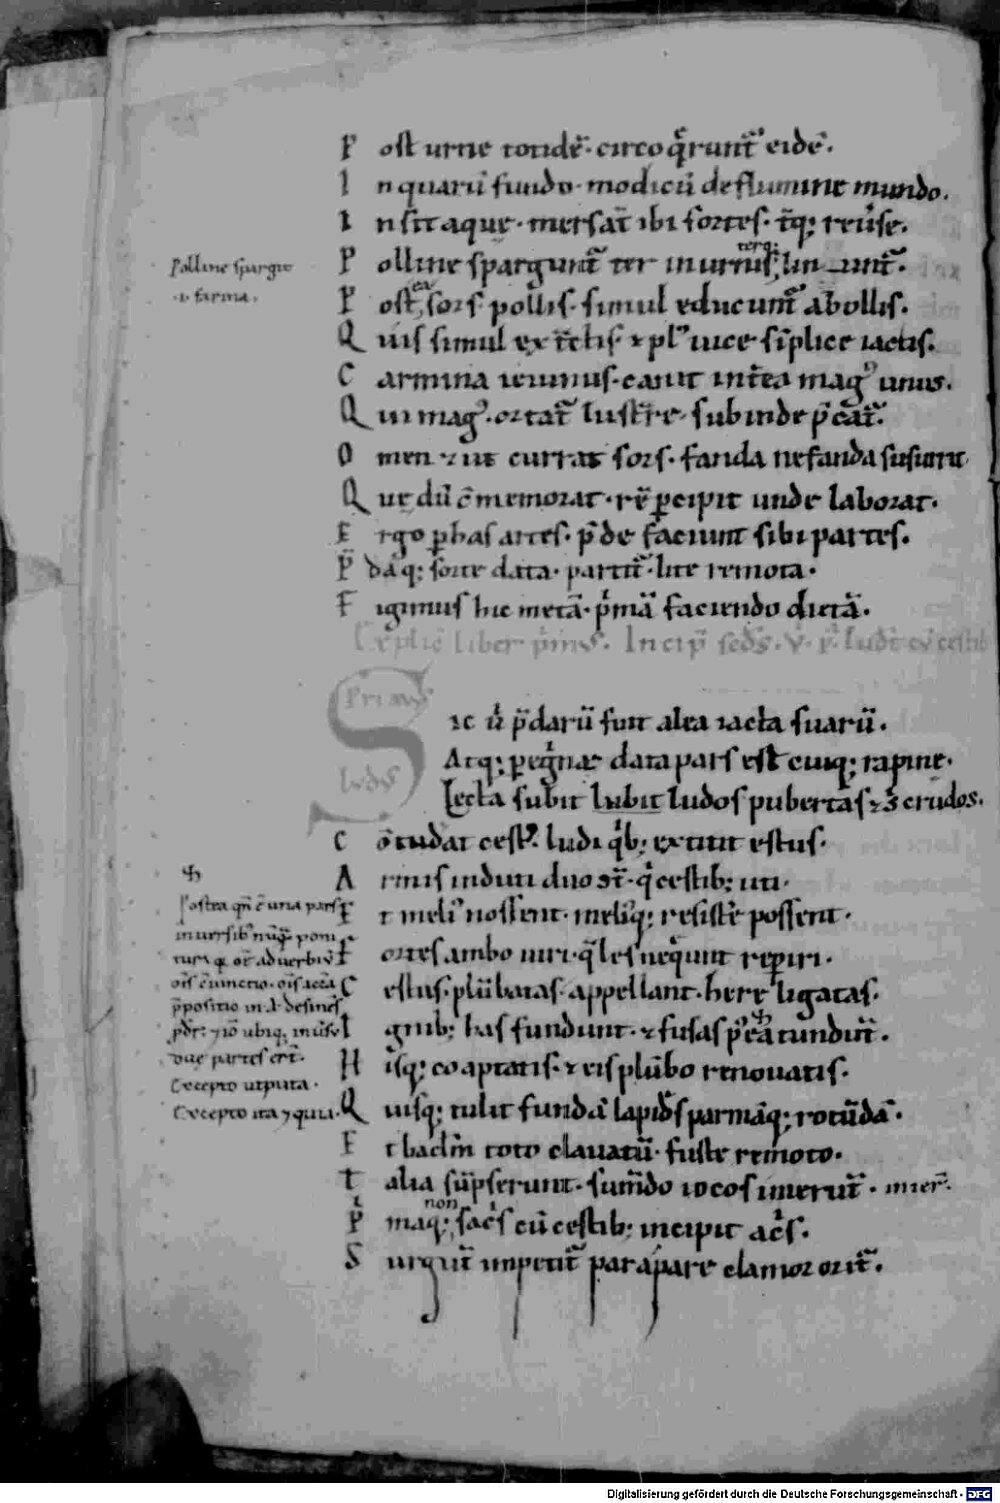 Post urne totidē. circo q̄runt̄ eidē.
In quarū fundo. modicū de flumine mundo.
In sit aque. mersat̄ ibi sortes. t̄q; reūse.
Polline spargunt̄ ter in urnis;
terq;
Polline spargo
.i. farina.
Post, sors pollis. simul educunt̄ abollis.
ex
Quis simul ex t̄ctis. ⁊ pl' uice sīplice iactis.
Carmina ieiunus. canit int̄ea mag' unus.
Qui mag'. ortat̄ lustr̄e, subinde p̄cat̄.
Omen ⁊ ut currat sors. fanda nefanda susurrat
Que dū c̄memorat. rē percipit unde laborat.
Ergo p has artes. p̄de faciunt sibi partes.
P̄daq; sorte data. partit̄. lite remota.
Figimus hic metā. p̄mā faciendo dietā.
Explic̄ liber p̄mus. Incip̄ sed̄s. v. p̄. ludī cū cestib
Primus
ludus
Sic ū p̄darū fuit alea iacta suarū.
Atq; peregrinae data pars est cuiq; rapine.
Lecta subit lubit ludos pubertas ⁊ 3 crudos.
Cōtudat cest'. ludi q̄b; extitit estus.
Armis induti duo st̄. q̄ cestib; uti.
Et meli' nossent. meliq; resistr̄e possent.
Fortes ambo uiri. q̄les nequnt reperiri.
Cestus. plūbatas. appellant. here ligatas.
Ignib; has fundunt. ⁊ fusas p'ea tundunt̄.
Hisq; coaptatis. ⁊ eis plūbo renouatis.
Quisq; tulit fundā lapid̄s parmāq; rotūdā.
Et bacl'm toto clauatū. fuste remoto.
Talia sūpserunt. sum̄do iocos inierunt̄. inier̄.
P̄maq; sac̄s cū cestib; incipit ac̄s.
non
Surgit̄ impetit̄ par a pare clamor orit̄.
Postea qn̄ c̄ una pars
in uersib; nūq̄ poni
tur
aduerbiū
p̄positio in .d. desinēs
due partes ert̄.
Excepto utputa.
Excepto ita ⁊ quin.
Digitalisierung gefördert durch die Deutsche Forschungsgemeinschaft - DFG